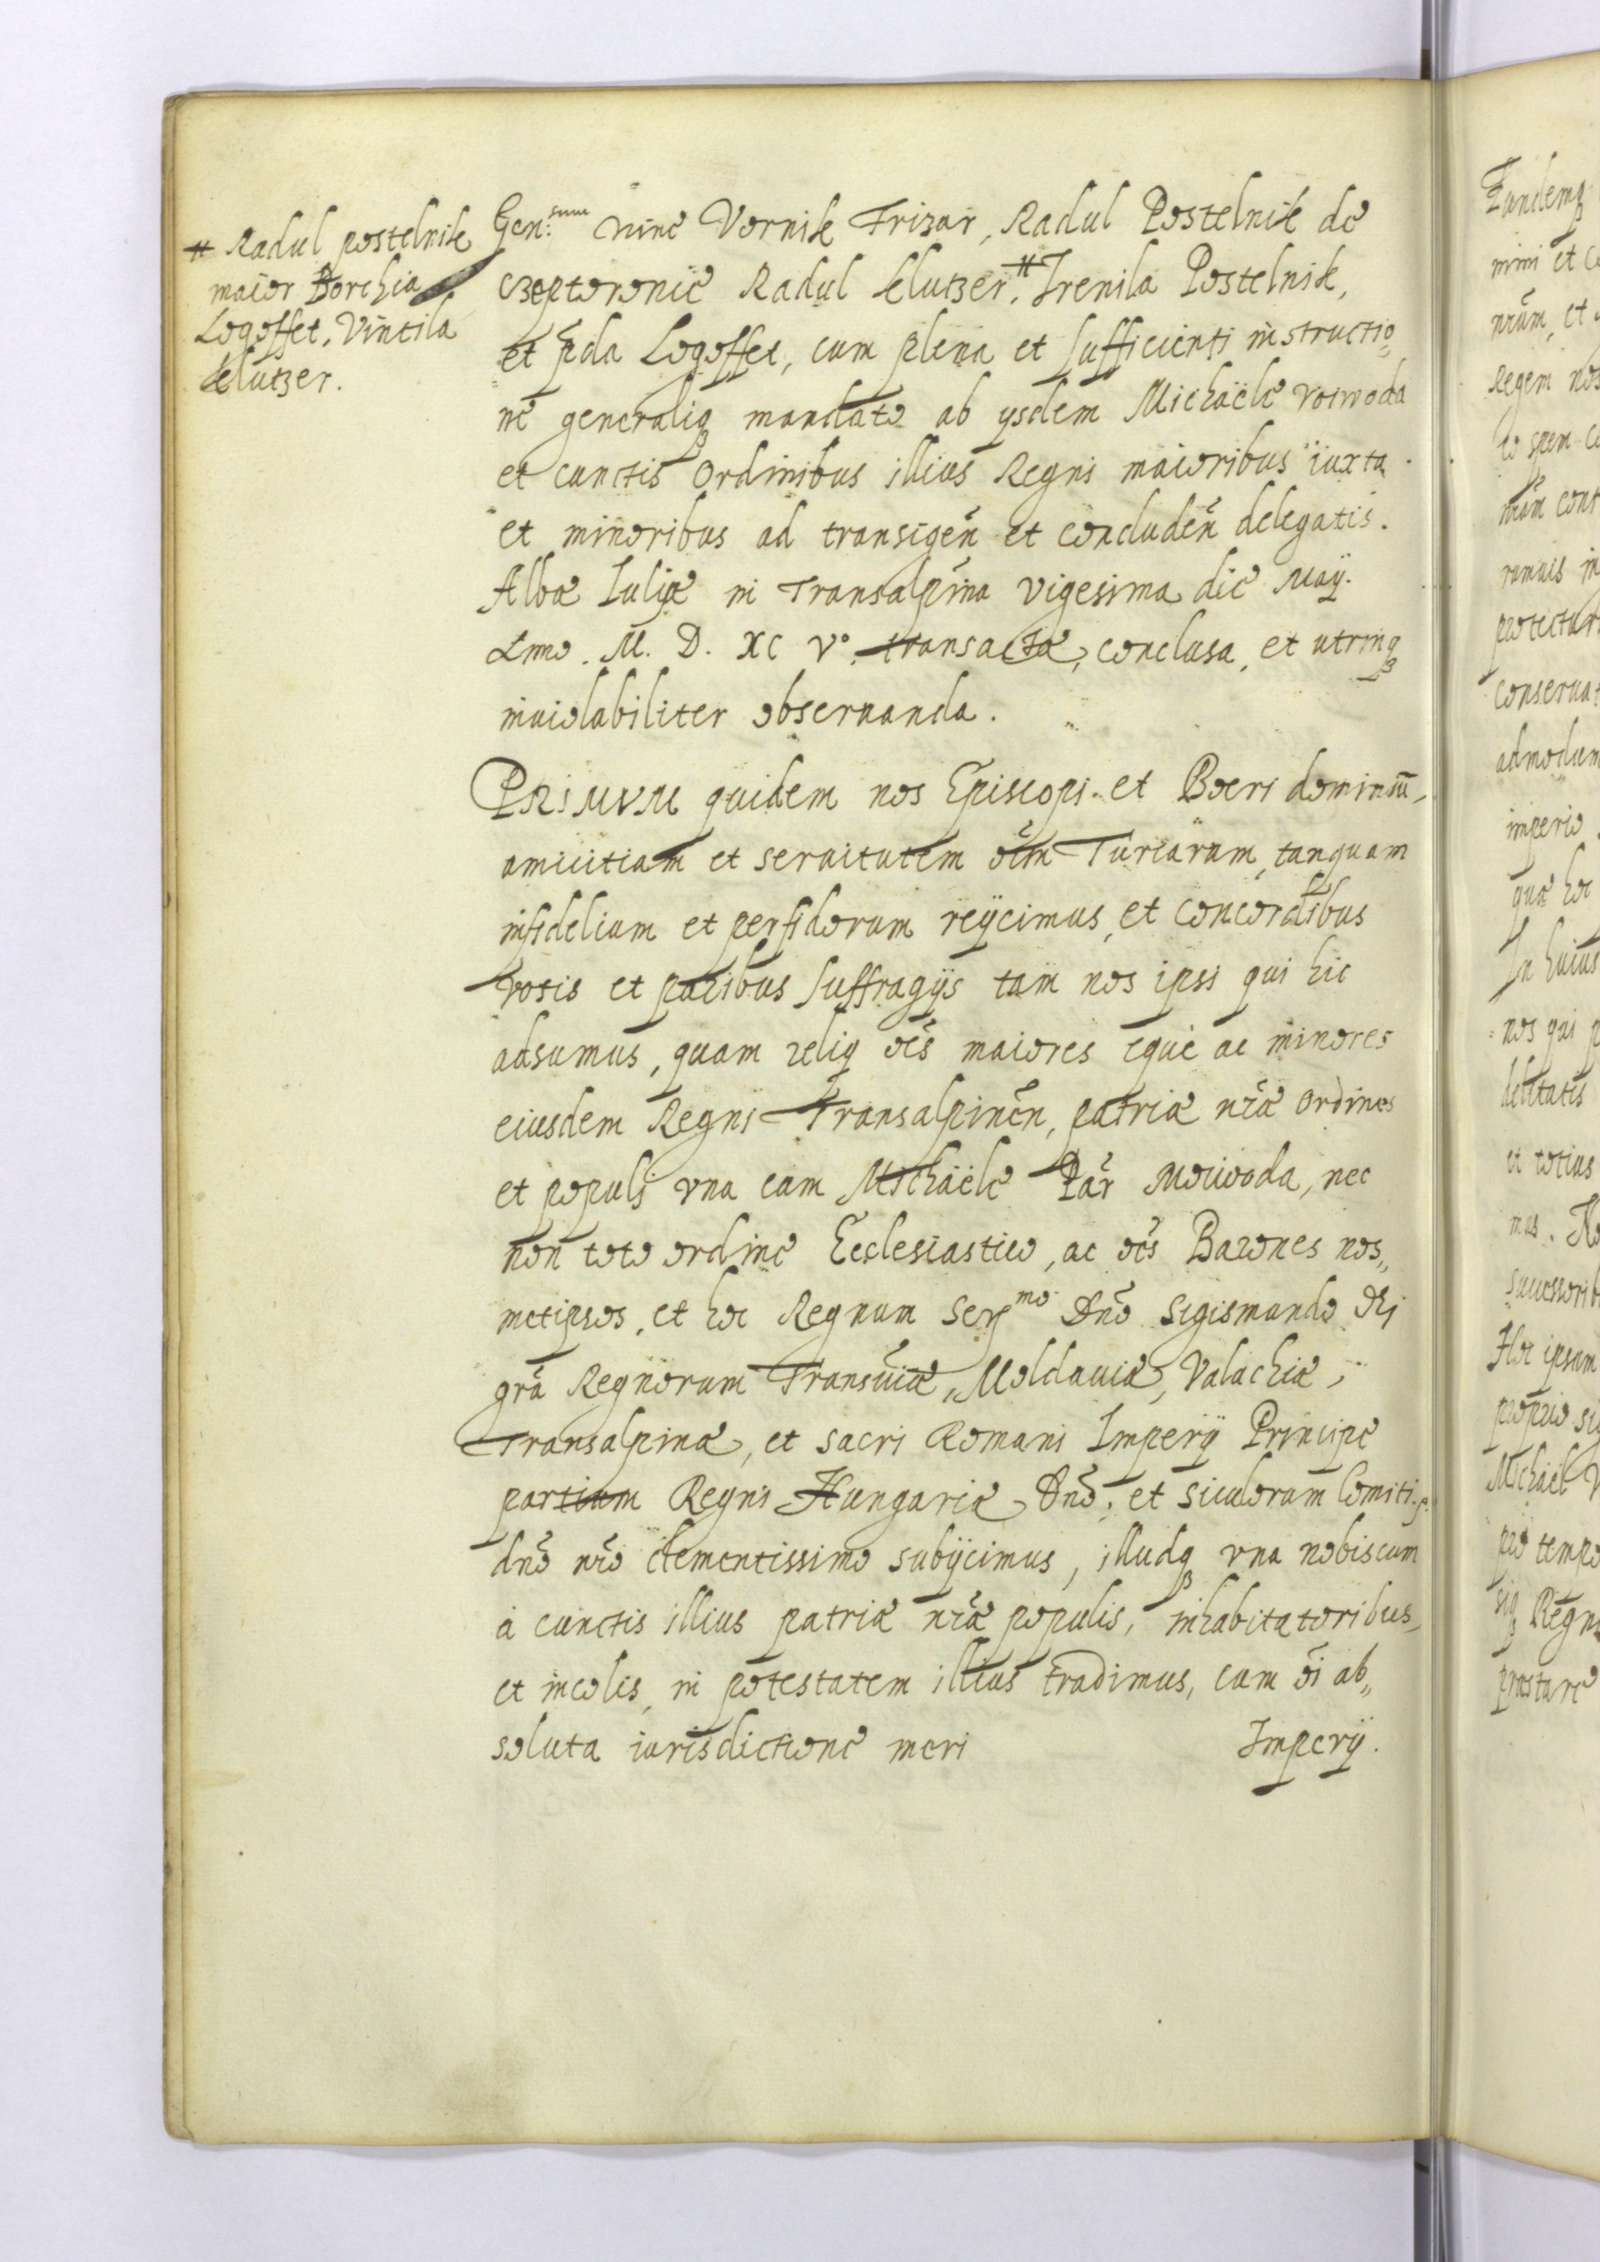 # Radul postelnik
maior Borchia
Logoffet, Vintila
klutzer.
Gen: Vornik Frizar, Radul Postelnik de
Czeptoronie Radul klutzer, # Irenila Postelnik,
et pda Logoffet, cum plena et sufficienti instructio
ne generaliq mandato ab ysdem Michaële Voiwoda
et cunctis ordinibus illius Regni maioribus iuxta
et minoribus ad transigen et concluden delegatis.
Albæ Iuliæ in Transalpina vigesima die May.
Anno. M. D. XC V°. transacta, conclusa, et utrinq
inuiolabiliter obseruanda.
PRIMVM quidem nos Episcopi et Boeri dominiũ,
amicitiam et seruitutem oĩm Turcarum, tanquam
infidelium et perfidorum reycimus, et concordibus
votis et paribus suffragijs tam nos ipsi qui hic
adsumus, quam reliq oẽs maiores eque ac minores
eiusdem Regni Transalpinẽn, patriæ nr̃æ ordines
et populi vna cum Michaële Par Woiwoda, nec
non toto ordine Ecclesiastico, ac oẽs Barones nos„
metipsos, et hoc Regnum Serᵐᵒ Dnõ Sigismundo Di
grã Regnorum Transuiæ, Moldauiæ, Valachiæ,
Transalpinæ, et sacri Romani Imperij Principe
partium Regni Hungariæ Dnõ, et Siculorum Comiti.
dnõ nr̃o clementissimo subycimus, illudq vna nobiscum
a cunctis illius patriæ nr̃æ populis, inhabitatoribus,
et incolis, in potestatem illius tradimus, cum oĩ ab„
soluta iurisdictione meri Imperij.
Tandemq
nimi et
nrum, et
Regem nos
spem
cont
ramuis in
conseruat
admodum
imperio
quæ hoc
In huius
nos qui
delitatis
et totius
mus.
successorib
Hoc ipsum
proprio
Michaël
pro tempo
Regn
præstare